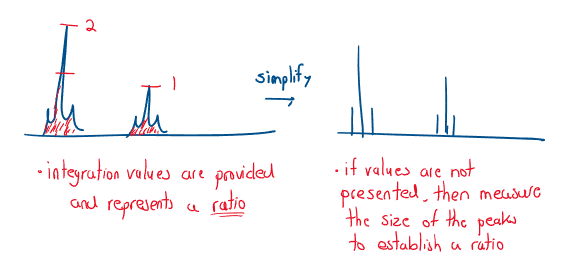 2
1
simplify
• integration values are provided
and represents a ratio
• if values are not
presented, then measure
the size of the peaks
to establish a ratio